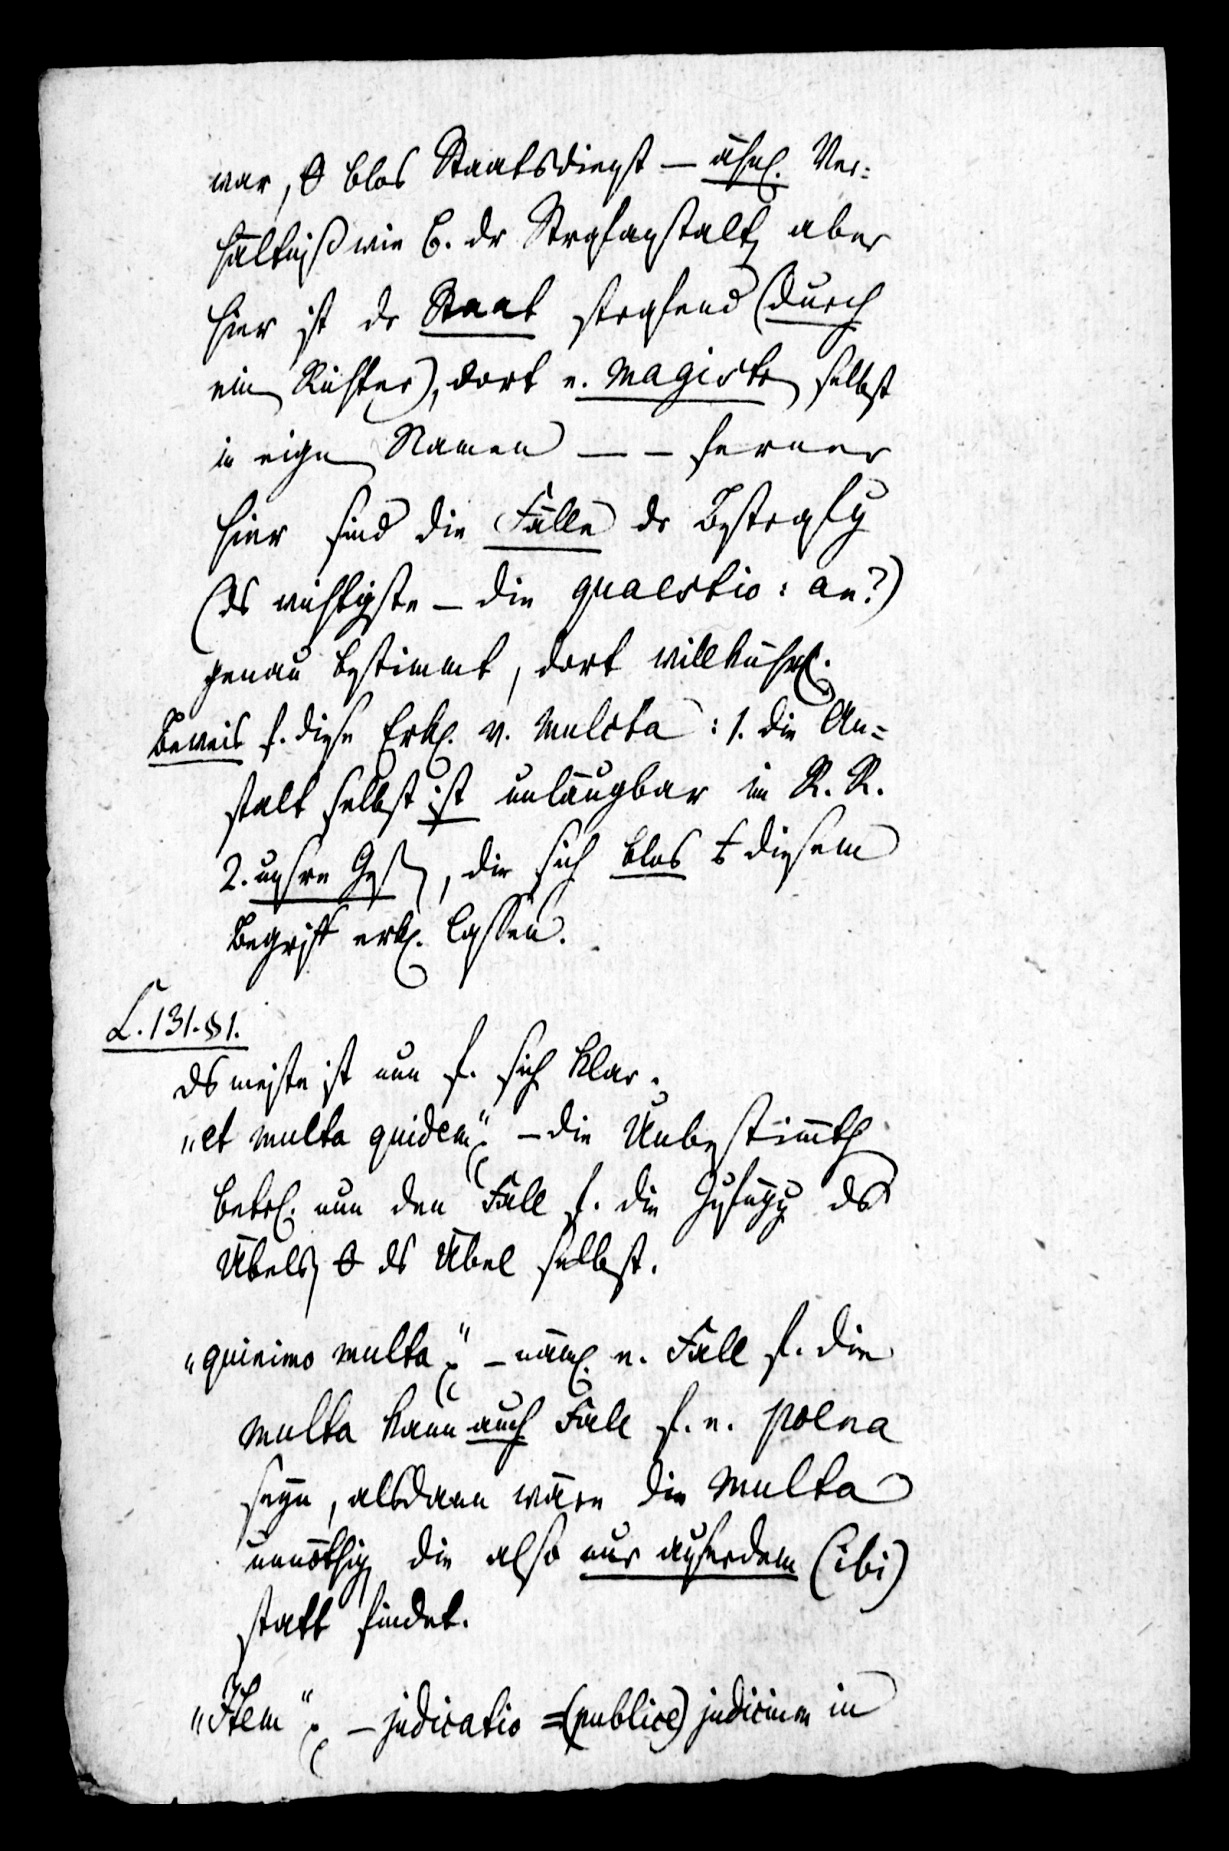 war, θ blos Staatsdienst — ähnl. Ver=
hältniß wie b. dr Strafanstalt, aber
hier ist dr Staat strafend (durch
ein Richter), dort e. Magistr selbst
in eign Namen — – ferner
hier sind die Fälle dr Bestrafg
(ds wichtigste — die quaestio: an?)
genau bestimmt, dort willkührl.
Beweis f. diese Erkl. v. Mulcta: 1. die An=
stalt selbst ist unläugbar im R. R.
2. unsre Ges, die sich blos diesem
Begriff erkl. lassen.
L. 131. §1.
ds meiste ist nun f. sich klar.
„et multa quidem“ – die Unbestimmth
betrf. nun den Fall f. die Zufügg ds
Übels, θ ds Übel selbst.
„quinimo multa“ – näml. e. Fall f. die
multa kann auch Fall f. e. poena
seyn, alsdann wäre die multa
unnöthig, die also nur außerdem (ibi)
statt findet.
„Item“ – judicatio = (publice) judicium in